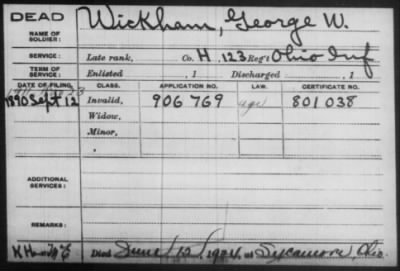 DEAD
Wickham, George W.
NAME OF
SOLDIER:
SERVICE: Late rank, Co. H, 123 Reg't Ohio Inf
TERM OF
SERVICE: Enlisted , 1 Discharged , 1
DATE OF FILING. CLASS. APPLICATION NO. LAW. CERTIFICATE NO.
1890 Sept 12 Invalid, 906 769 age 801 038
Widow,
Minor,
,
ADDITIONAL
SERVICES:
REMARKS:
Died June 12, 1924, at Sycamore, Ohio.